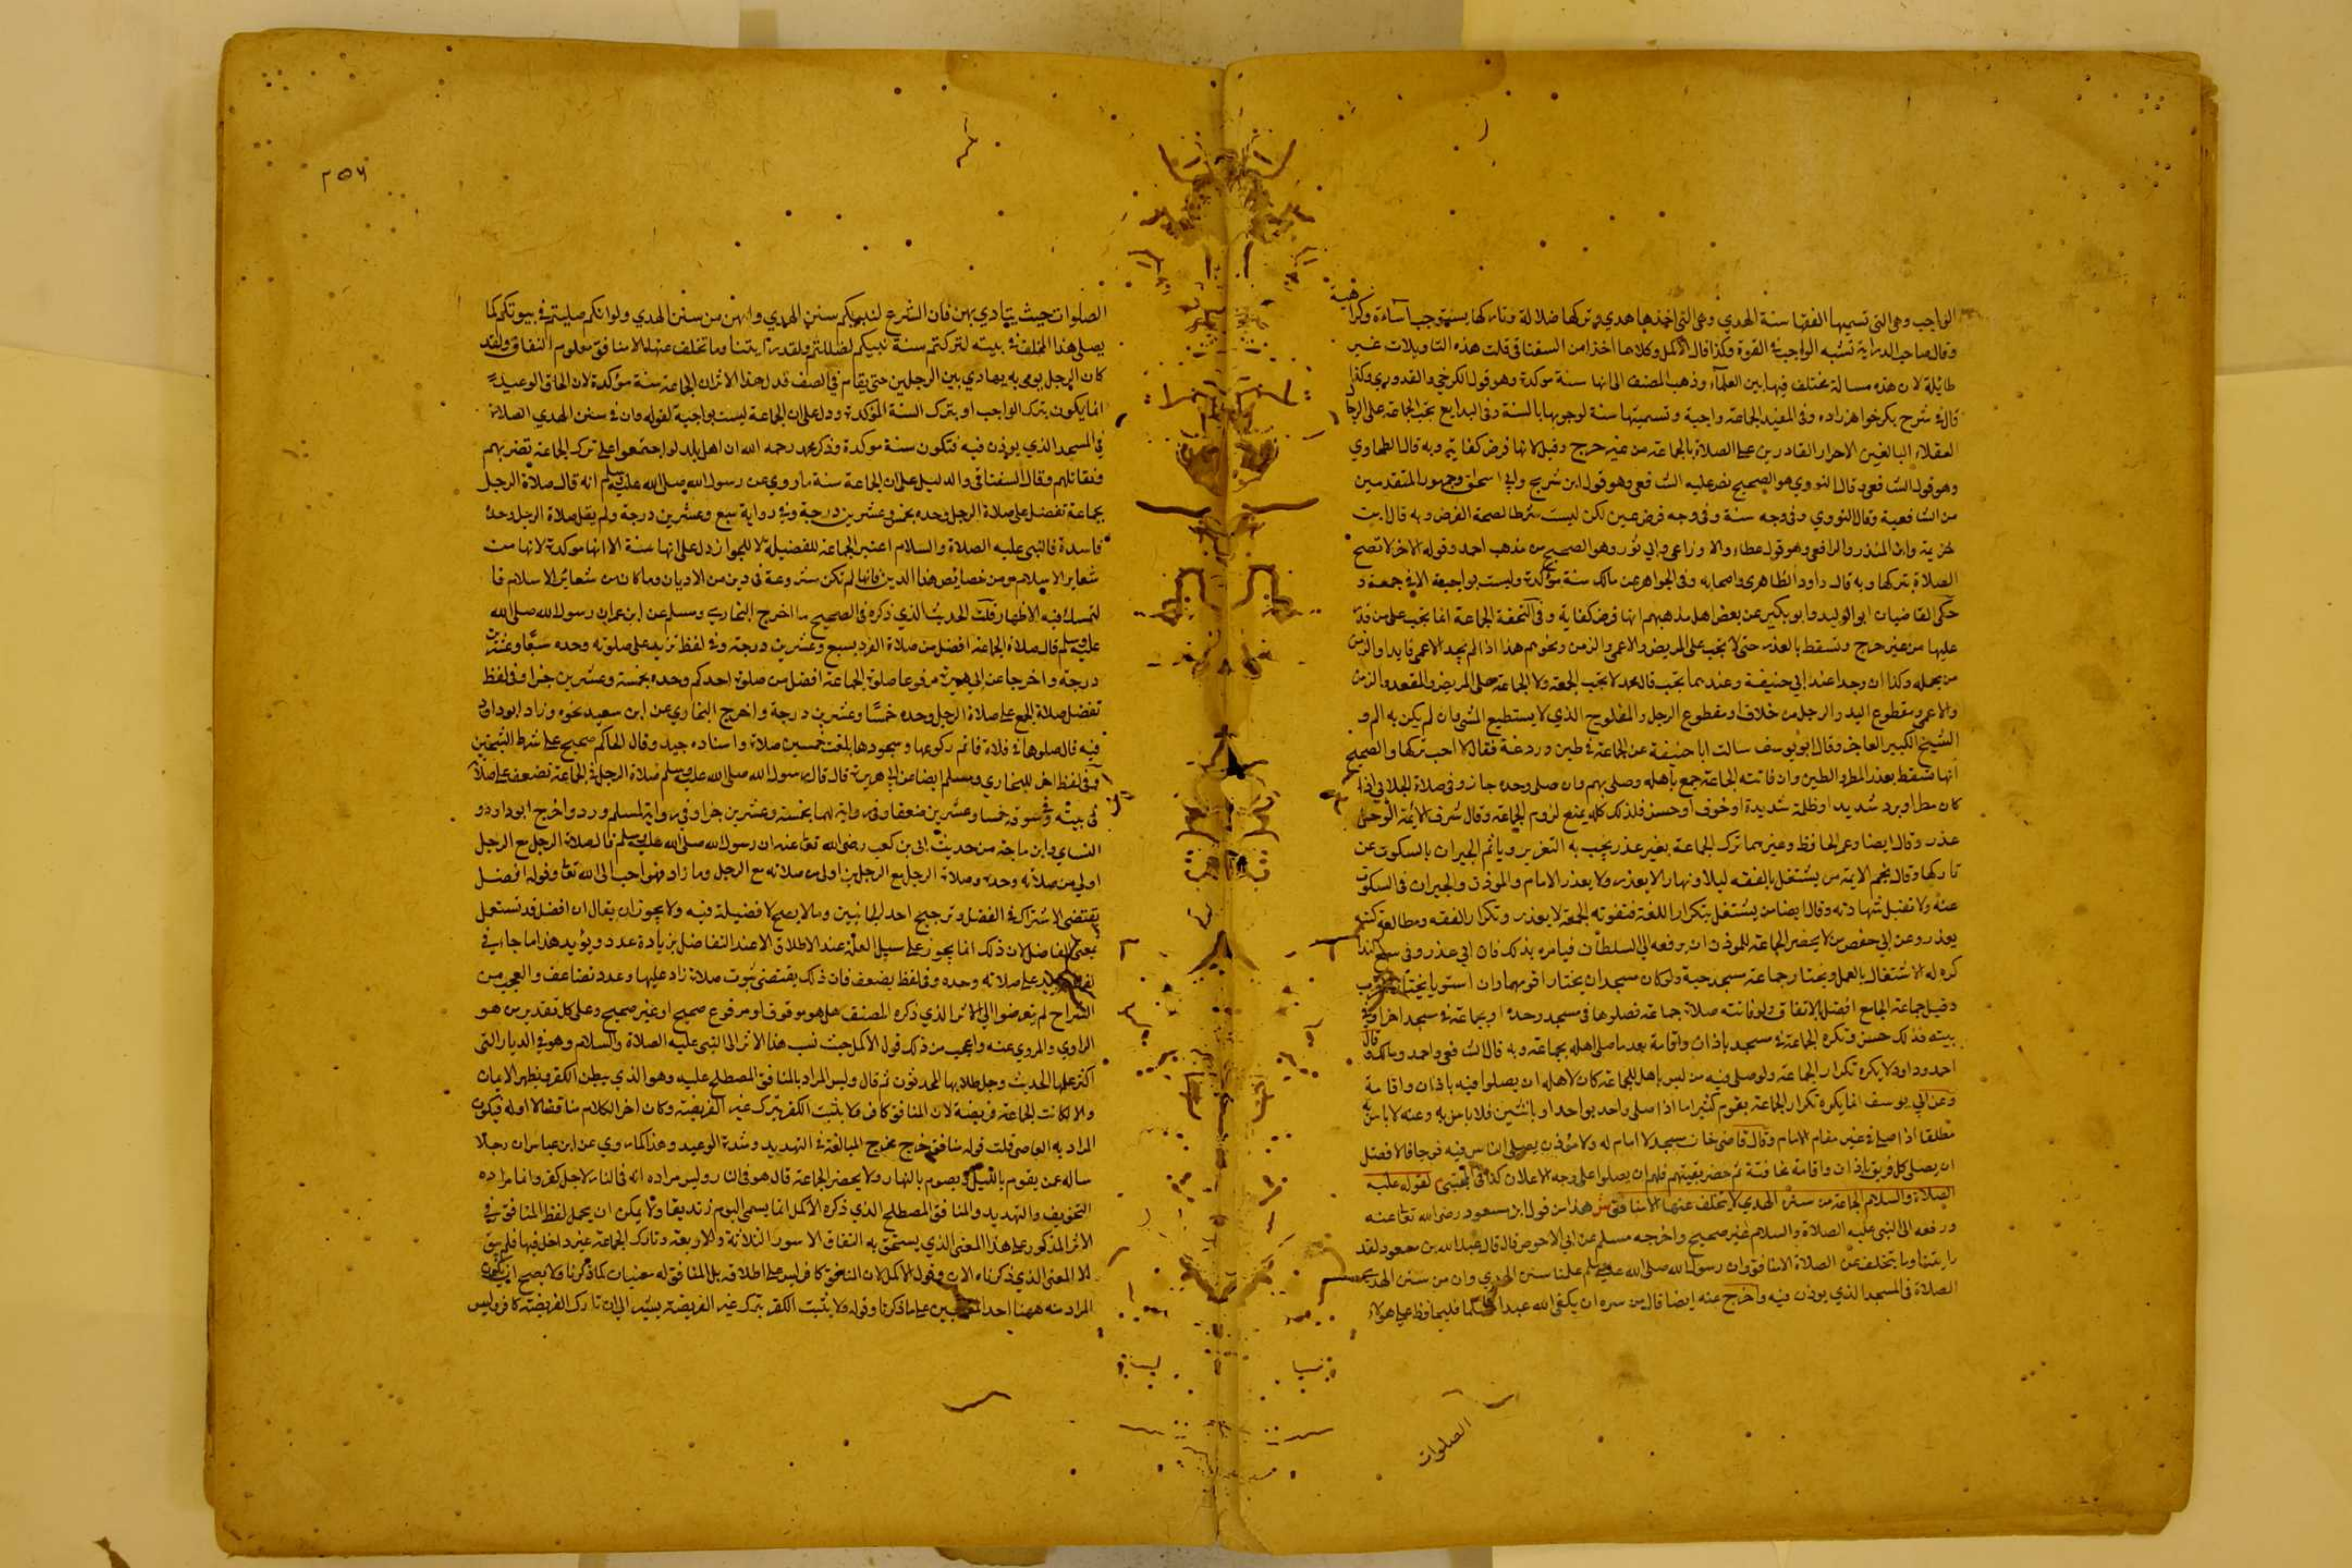 الواجب وهي التي تسميها الفقها سنة الهدي وهي التي اخذها هدي وتركها ضلالة وتاركها يستوجب اساءة وكراهية
وقال صاحب الدراية تشبه الواجب في القوة وكذا قال الاكمل وكلاهما اخذا من السغناقي قلت هذه التاويلات غير
طائلة لان هذه مسالة مختلف فيها بين العلمآء وذهب المصنف الى انها سنة موكدة وهو قول الكرخي والقدوري وكذا
قال في شرح بكر خواهرزاده وفي المفيد الجماعة واجبة وتسميتها سنة لوجوبها بالسنة وفي البدايع تجب الجماعة على الرجا
العقلاء البالغين الاحرار القادرين على الصلاة بالجماعة من غير حرج وقيل لانها فرض كفاية وبه قال الطحاوي
وهو قول الشافعي قال النووي هو الصحيح نص عليه الشافعي وهو قول ابن شريح وابي اسحق وجمهور المتقدمين
من الشافعية وقال النووي وفي وجه سنة وفي وجه فرض عين لكن ليست شرطا لصحة الفرض وبه قال ابن
خزيمة وابن المنذر والرافعي وهو قول عطاء والاوزاعي وابي ثور وهو الصحيح من مذهب احمد وقوله الاخر لا تصح
الصلاة بتركها وبه قال داود الظاهري واصحابه وفي الجواهر عن مالك سنة مؤكدة وليست بواجبة الا في جمعة و
حكى القاضيان ابو الوليد وابو بكير عن بعض اهل مذهبهم انها فرض كفاية وفي التحفة الجماعة انما تجب على من قدر
عليها من غير حرج وتسقط بالعذر حتى لا تجب على المريض والاعمى والزمن ونحوهم هذا اذا لم يجد الاعمى قايدا والزمن
من يحمله وكذا ان وجدا عند ابي حنيفة وعندهما تجب قال محمد لا تجب الجمعة ولا الجماعة على المريض والمقعد والزمن
والاعمى ومقطوع اليد والرجل من خلاف او مقطوع الرجل والمفلوج الذي لا يستطيع المشي وان لم يكن به الم و
الشيخ الكبير العاجز وقال ابو يوسف سالت ابا حنيفة عن الجماعة في طين وردغة فقال لا احب تركها والصحيح
انها تسقط بعذر المطر والطين وان فاتته الجماعة جمع باهله وصلى بهم وان صلى وحده جاز وفي صلاة الجلابي اذا
كان مطر او برد شديد او ظلمة شديدة او خوف او حبس فذلك كله يمنع لزوم الجماعة وقال شرف الائمة
عذر وقال ايضا وعمر الحافظ وغيرهما ترك الجماعة بغير عذر يجب به التعزير وياثم الجيران بالسكوت عن
تاركها وقال نجم الايمة من يشتغل بالفقه ليلا ونهارا لا يعذر ولا يعذر الامام والموذن والجيران في السكوت
عنه ولا تقبل شهادته وقال ايضا من يشتغل بتكرار اللغة فتفوته الجمعة لا يعذر وتكرار الفقه ومطالعة كتبه
يعذر وعن ابي حفص من لا يحضر الجماعة للموذن ان يرفعه الى السلطان فيامره بذلك فان ابى عذر وفي
كره له الاشتغال بالعمل ويختار جماعة مسجد حية ولو كان مسجدان يختار اقومهما وان استويا
وقيل جماعة الجامع افضل بالاتفاق ولو فاتته صلاة جماعة فصلوها في مسجد وحده او بجماعة في مسجد اخر او في
بيته فذلك حسن وتكره الجماعة في مسجد باذان واقامة بعد ما صلى اهله بجماعة وبه قال الشافعي واحمد ومالك وقال
احمد وداود لا يكره تكرار الجماعة ولو صلى فيه من ليس باهله بجماعة كان لاهله ان يصلوا فيه باذان واقامة
وعن ابي يوسف انما يكره تكرار الجماعة بقوم كثير اما اذا صلى واحد بواحد او باثنين فلا باس به وعنه لا باس به
مطلقا اذا صلى في غير مقام الامام وقال قاضي خان مسجد لا امام له ولا مؤذن يصلي الناس فيه فوجا فالافضل
ان يصلي كل فريق باذان واقامة مخافتة ثم حضر بقيتهم فلهم ان يصلوا على وجه الاعلان كذا في المجتبى لقوله عليه
الصلاة والسلام الجماعة من سنن الهدي لا يتخلف عنها الا منافق ش هذا من قول ابن مسعود رضي الله تعا عنه
ورفعه الى النبي عليه الصلاة والسلام غير صحيح واخرجه مسلم عن ابي الاحوص قال قال عبد الله بن مسعود لقد
رايتنا وما يتخلف عن الصلاة الا منافق وان رسول الله صلى الله عليه وسلم علمنا سنن الهدي وان من سنن الهدي
الصلاة في المسجد الذي يوذن فيه واخرج عنه ايضا قال من سره ان يلقى الله غدا مسلما فليحافظ على هولاء
الصلوات
٢٥٦
الصلوات حيث ينادي بهن فان الشرع لنبيكم سنن الهدي وانهن من سنن الهدي ولو انكم صليتم في بيوتكم كما
يصلي هذا المتخلف في بيته لتركتم سنة نبيكم لضللتم ولقد رايتنا وما تخلف عنها الا منافق معلوم النفاق ولقد
كان الرجل يومى به يهادي بين الرجلين حتى يقام في الصف فدل هذا الاثر ان الجماعة سنة مؤكدة لان الحاق الوعيد
انما يكون بترك الواجب او بترك السنة المؤكدة ودل على ان الجماعة ليست بواجبة لقوله وان في سنن الهدي الصلاة
في المسجد الذي يوذن فيه فتكون سنة موكدة وذكر محمد رحمه الله ان اهل بلد لو اجتمعوا على ترك الجماعة نضربهم
ونقاتلهم وقال السغناقي والدليل على ان الجماعة سنة ما روي عن رسول الله صلى الله عليه وسلم انه قال صلاة الرجل
بجماعة تفضل على صلاة الرجل وحده بخمس وعشرين درجة وفي رواية سبع وعشرين درجة ولم يقل صلاة الرجل وحده
فاسدة فالنبي عليه الصلاة والسلام اعتبر الجماعة للفضيلة لا للجواز دل على انها سنة الا انها موكدة لانها من
شعاير الاسلام ومن خصائص هذا الدين فانها لم تكن مشروعة في دين من الاديان وما كان من شعائر الاسلام فا
لتمسك فيه الاظهار قلت الحديث الذي ذكره في الصحيح ما اخرج البخاري ومسلم عن ابن عمر ان رسول الله صلى الله
عليه وسلم قال صلاة الجماعة افضل من صلاة الفرد بسبع وعشرين درجة وفي لفظ تزيد على صلوته وحده سبعا وعشرين
درجة واخرجا عن ابي هريرة مرفوعا صلوة الجماعة افضل من صلوة احدكم وحده بخمسة وعشرين جزا وفي لفظ
تفضل صلاة الجمع على صلاة الرجل وحده خمسا وعشرين درجة واخرج البخاري عن ابي سعيد نحوه وزاد ابو داود
فيه قال صلوها في فلاة فاتم ركوعها وسجودها بلغت خمسين صلاة واسناده جيد وقال الحاكم صحيح على شرط الشيخين
وفي لفظ اخر للبخاري ومسلم ايضا عن ابي هريرة قال قال رسول الله صلى الله عليه وسلم صلاة الرجل في الجماعة تضعف على صلا
في بيته وسوقه خمسا وعشرين ضعفا وفي رواية لهما بخمسة وعشرين جزا وفي رواية لمسلم ورد واخرج ابو داود و
النساي وابن ماجة من حديث ابي بن كعب رضي الله تعا عنه ان رسول الله صلى الله عليه وسلم قال صلاة الرجل مع الرجل
اولى من صلاته وحده وصلاة الرجل مع الرجلين اولى من صلاته مع الرجل وما زاد فهو احب الى الله تعا وقوله افضل
يقتضى الاشتراك في الفضل وترجيح احد الجانبين وما لا يصح لا فضيلة فيه ولا يجوز ان يقال ان افضل قد تستعمل
بمعنى الفاضل لان ذلك انما يجوز على سبيل القلة عند الاطلاق لا عند التفاضل بزيادة عدد ويؤيد هذا ما جاء في
لفظ يزيد على صلاته وحده وفي لفظ يضعف فان ذلك يقتضي ثبوت صلاة زاد عليها وعدد تضاعف والعجب من
الشراح لم يتعرضوا الى الاثر الذي ذكره المصنف هل هو موقوف او مرفوع صحيح او غير صحيح وعلى كل تقدير من هو
الراوي والمروي عنه واعجب من ذلك قول الاكمل حيث نسب هذا الاثر الى النبي عليه الصلاة والسلام وهو في الديار التي
اكثر علمها الحديث وجل طلابها المحدثون ثم قال وليس المراد بالمنافق المصطلح عليه وهو الذي يبطن الكفر ويظهر الايمان
والا لكانت الجماعة فريضة لان المنافق كافر ولا يثبت الكفر بترك غير الفريضة وكان اخر الكلام مناقضا لاوله فيكون
المراد به العاصي قلت قوله منافق خرج مخرج المبالغة في التهديد وشدة الوعيد وهذا كما روي عن ابن عباس ان رجلا
ساله عمن يقوم بالليل ويصوم بالنهار ولا يحضر الجماعة قال هو في النار وليس مراده انه في النار لاجل كفر وانما مراده
التخويف والتهديد والمنافق المصطلح الذي ذكره الاكمل انما يسمى اليوم زنديقا ولا يمكن ان يحمل لفظ المنافق في
الاثر المذكور على هذا المعنى الذي يستحق به النفاق الاسود الثلاثة والاربعة وتارك الجماعة غير داخل فيها فلم يبق
الا المعنى الذي ذكرناه الان وقول الاكمل ان المنافق كافر ليس على اطلاقه بل المنافق له معنيان كما ذكرنا ولا يصح ان يكون
المراد منه ههنا احد المعنيين على ما ذكرنا وقوله ولا يثبت الكفر بترك غير الفريضة يشير الى ان تارك الفريضة كافر وليس